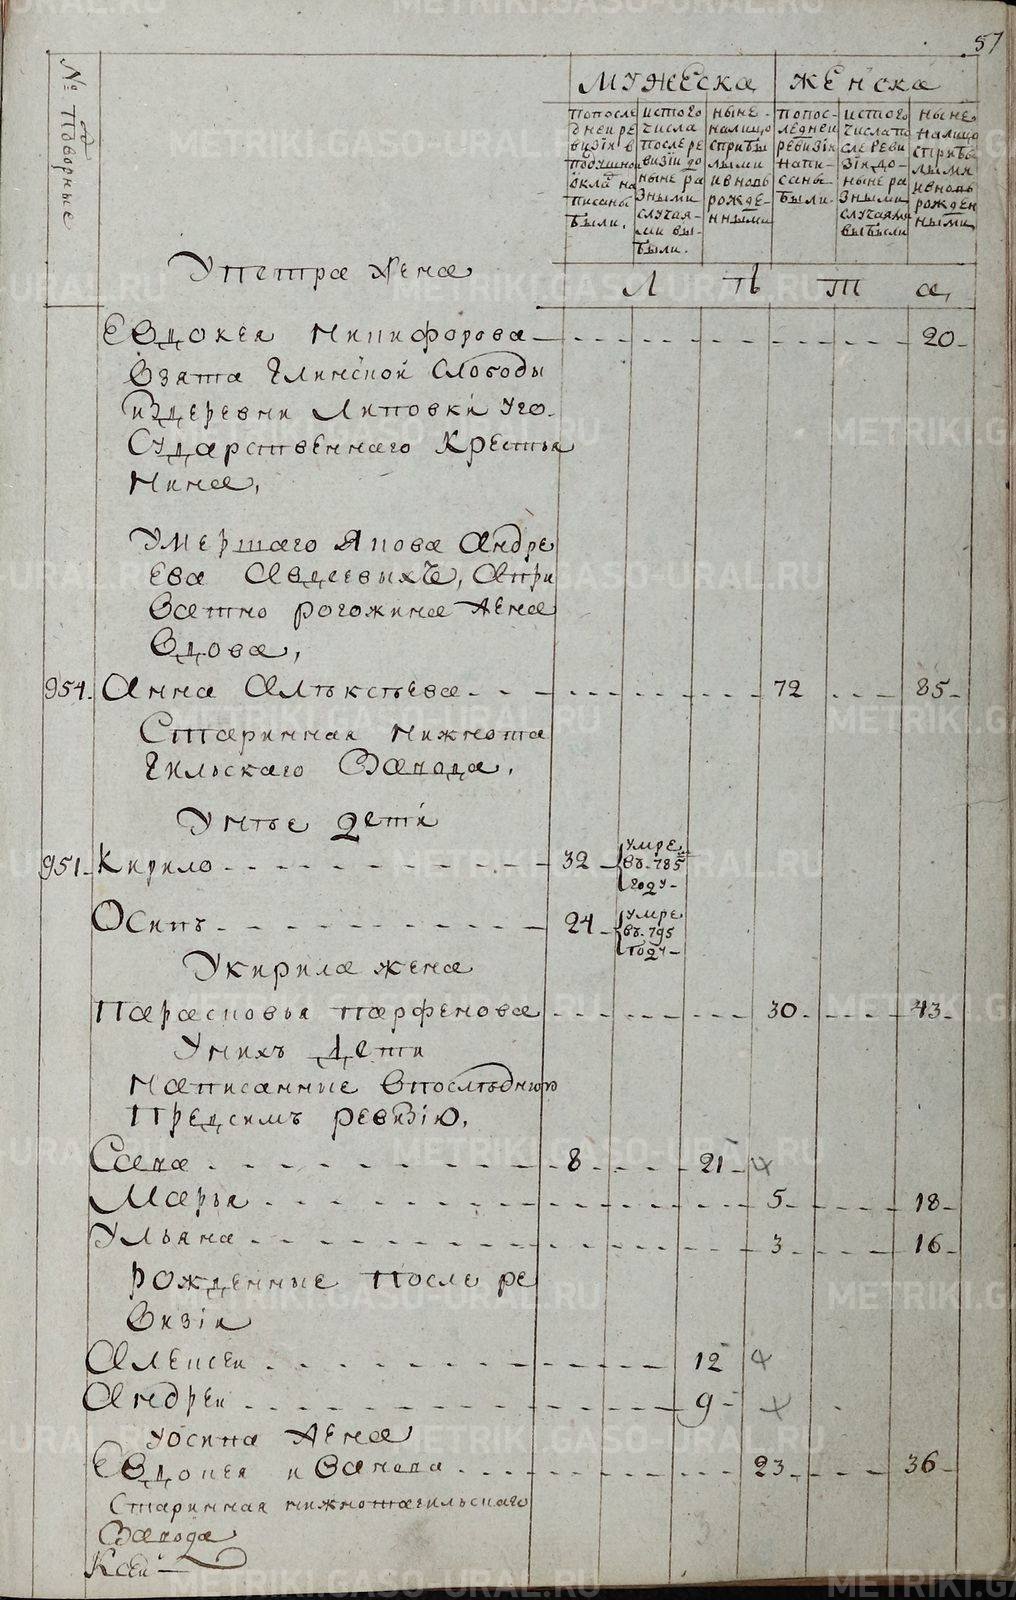 57
№ Подворные
МУЖЕСКА
ЖЕНСКА
попосле
дней ре
визiи в
подушной
окладъ на
писаны
были.
истого
числа
после ре
визiи до
ныне ра
зными
случая-
ми вы-
были.
ныне
налицо
сприбы
лыми
ивновь
рожде-
нными
попос-
ледней
ревизiи
напи-
саны
были.
истого
числа по
сле реви
зiи до-
ныне ра
зными
случаями
выбыли
ныне
налицо
сприбы
лыми
ивновь
рожден
ными
Упетра жена
Л ѣ т а,
Евдокея Никифорова 20
Взята Глинской Слободы
издеревни Липовки уго-
Сударственнаго Крестья
нина,
Умершаго Якова Андре
ева Авдеевыхъ, Апри
ватно рогожина жена
вдова,
954. Анна Алѣксѣева 72 85
Старинная нижнота
гильскаго Завода,
Унѣе дети
951. Кирило 32 умре
въ 785
году
Осипъ 24 умре
въ 795
году
Укирила жена
Парасковья парфенова 30 43
Унихъ дети
написанные впослѣднюю
Предсимъ ревизiю,
Сава 8 21
Марья 5 18
Ульяна 3 16
Рожденные после ре
визiи
Алексеи 12
Андреи 9
уосипа жена
Евдокея иванова 23 36
Старинная нижнотагильскаго
Завода
Ксеи